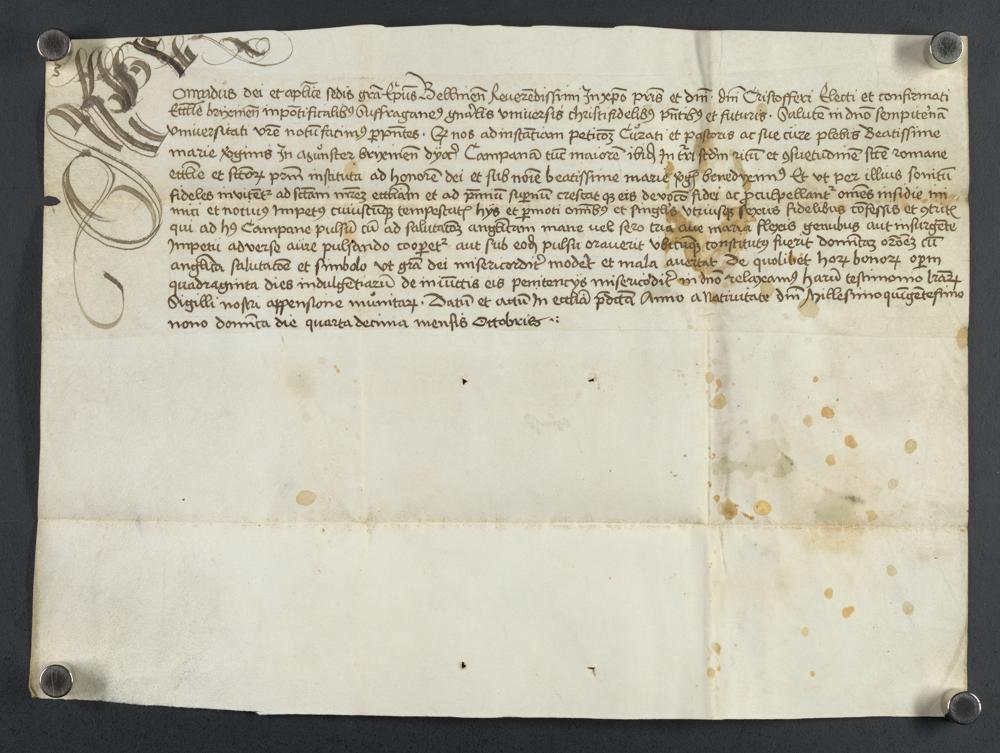 3
Conradus dei et aplice sedis gra Epus Bellinen Reverendissimi In xpo pris et dni dni Cristofferi Electi et confirmati
Ecclie brixinen in pontificalibus Suffraganeus gnalis universis christifidelibus pntibus et futuris Salute in dno sempiterna
Universitati vre notu facimus p pntes Qz nos ad instantiam peticoz Curati et pastoris ac sue cure plebis Beatissime
marie vginis In Munster brixinen dyoc Campanam tunc maiore ibidem Iuxta ritu et consuetudine scte romane
ecclie et sctor prm instituta ad honore dei et sub noie beatissime marie vgis benediximus Et ut per illius sonitu
fideles invitent ad sctam matrem eccliam et ad premiu supnu crescat qz eis devoco fidei ac procul pellant omes insidie ini
mici et nocivus Impetus cuiuscunqz tempestatis hys et pmoti omibus et singulis utriusqz sexus fidelibus confessis et contritis
qui ad hui Campane pulsu cu ad salutacoz anglicam mane vel sero tria ave maria flexis genubus aut insurgete
Imperii adverse aure pulsando cooperet aut sub eoz pulsu oraverit ubicuqz constitutus fuerit dominicas oracoez cu
anglica salutacoe et simbolo ut gra dei misericorditer moderet et mala avertat De quolibet horz bonorz operm
quadraginta dies indulgetiarum de iniuctis eis penitencys misericorditer in dno relaxamus haru testimonio lrarz
Sigilli nostri appensione munitarz Datum et actu In ecclia pdicta Anno a Nativitate dni Millesimo quigetesimo
nono dominica die quartadecima mensis Ottobris